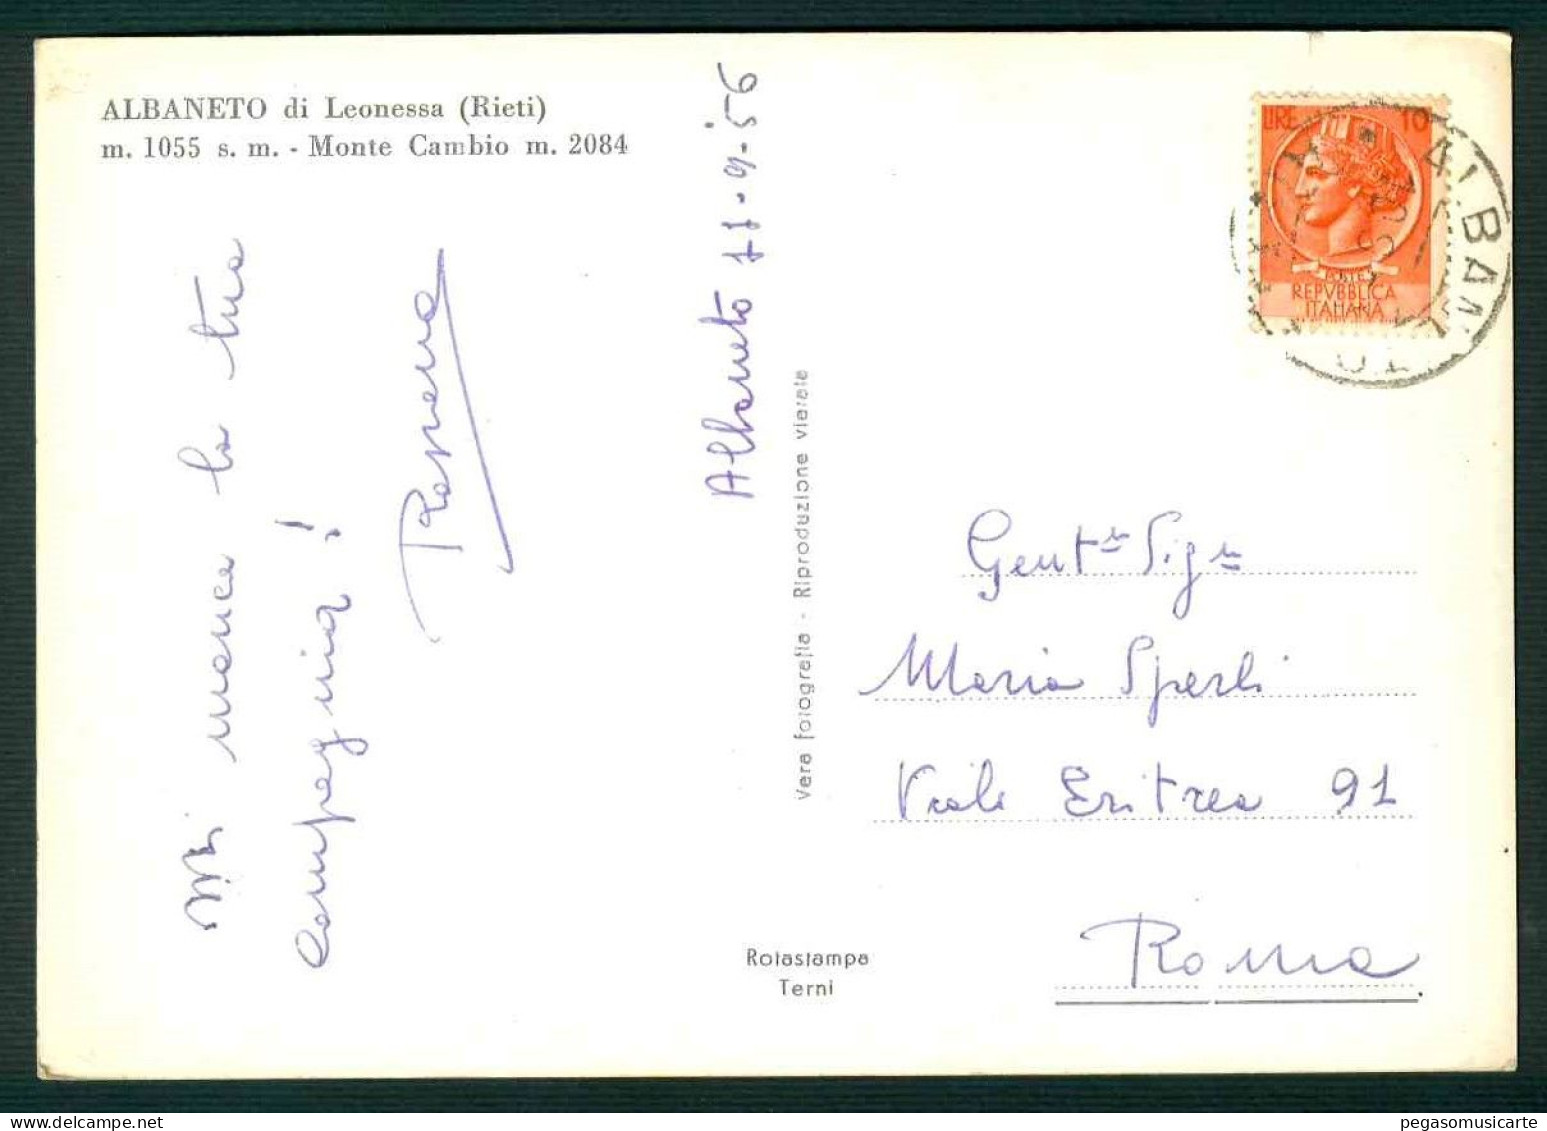 ALBANETO di Leonessa (Rieti)
m. 1055 s. m. - Monte Cambio m. 2084
Mi manca la tua
compagnia!
Albaneto 11-9-'56
Vera fotografia - Riproduzione vietata
Rotastampa
Terni
LIRE 10
POSTE
REPVBBLICA
ITALIANA
Gent.ma Sig.na
Maria Sperli
Viale Eritrea 91
Roma
pegasomusicarte